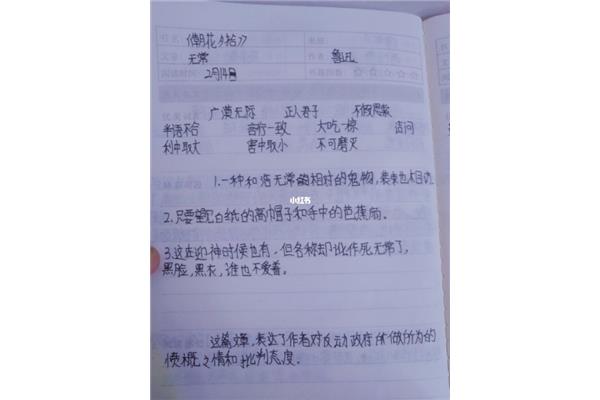 《朝花夕拾》
无常 作者 鲁迅
阅读时间 2月14日
广漠无际 正人君子 不假思索
半语不合 言行一致 大吃一惊 诘问
利中取大 害中取小 不可磨灭
1.一种和活无常相对的鬼物,装束也相同
2.只要望见白纸的高帽子和手中的芭蕉扇。
小红书
3.这在迎神时候也有,但名称却讹作死无常了,
黑脸,黑衣,谁也不爱看。
这篇文章,表达了作者对反动政府所做所为的
愤概之情和批判态度。